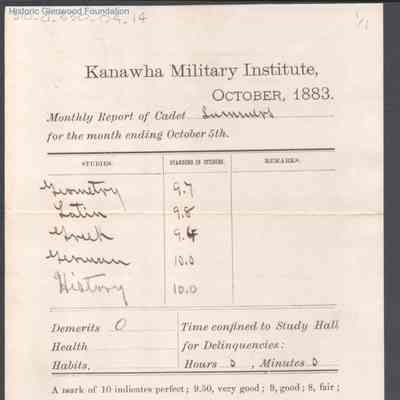 Historic Glenwood Foundation
1/1
Kanawha Military Institute,
OCTOBER, 1883.
Monthly Report of Cadet Summers
for the month ending October 5th.
STUDIES. STANDING IN STUDIES. REMARKS.
Geometry 9.7
Latin 9.8
Greek 9.4
German 10.0
History 10.0
Demerits 0 Time confined to Study Hall
Health for Delinquencies:
Habits. Hours 0 , Minutes 0
A mark of 10 indicates perfect; 9.50, very good; 9, good; 8, fair;